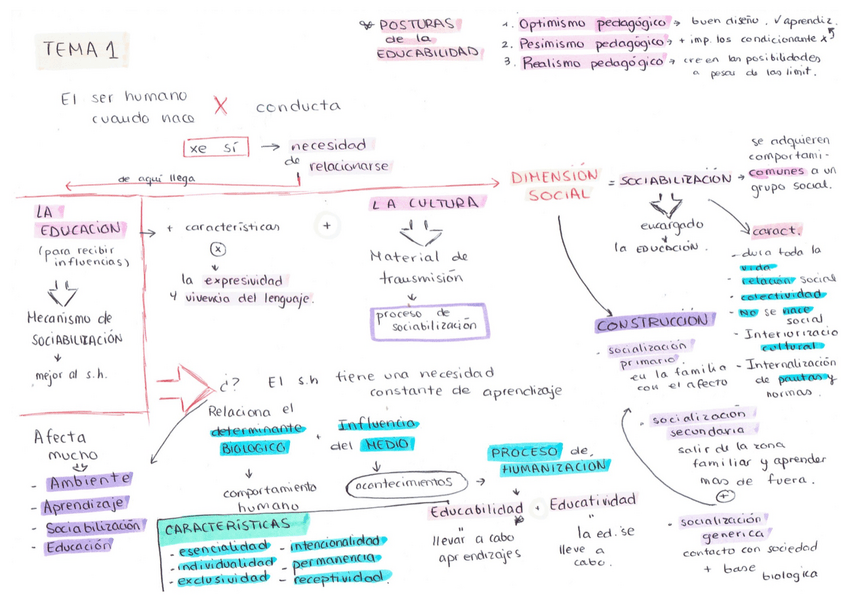 TEMA 1
* POSTURAS
de la
EDUCABILIDAD
1. Optimismo pedagógico → buen diseño, √ aprendiz.
2. Pesimismo pedagógico → + imp. los condicionante x
3. Realismo pedagógico → creen las posibilidades
a pesar de las limit.
El ser humano
cuando nace
X conducta
xe sí → necesidad
de relacionarse
de aquí llega
LA
EDUCACION
(para recibir
influencias)
Mecanismo de
SOCIABILIZACIÓN
mejor al s.h.
+ características
x
la expresividad
y vivencia del lenguaje.
+
LA CULTURA
Material de
transmisión
proceso de
sociabilización
DIMENSIÓN
SOCIAL
= SOCIABILIZACIÓN →
se adquieren
comportami-
comunes a un
grupo social.
encargado
la EDUCACIÓN.
caract.
- dura toda la
vida
- relación social
- colectividad
- No se nace
social
- Interiorizacio
cultural
- Internalización
de pautas y
normas.
CONSTRUCCION
- socialización
primario
en la familia
con el afecto
- socialización
secundaria
salir de la zona
familiar y aprender
mas de fuera.
+
- socialización
generica
contacto con sociedad
+ base
biologica
¿? El s.h tiene una necesidad
constante de aprendizaje
Relaciona el
determinante
BIOLOGICO
comportamiento
humano
+ Influencia
del MEDIO
acontecimientos →
PROCESO de
HUMANIZACION
Educabilidad + Educatividad
"
llevar a cabo
aprendizajes
"
la ed. se
lleve a
cabo.
Afecta
mucho
- Ambiente
- Aprendizaje
- Sociabilización
- Educación
CARACTERÍSTICAS
- esencialidad - intencionalidad
- individualidad - permanencia
- exclusividad - receptividad.